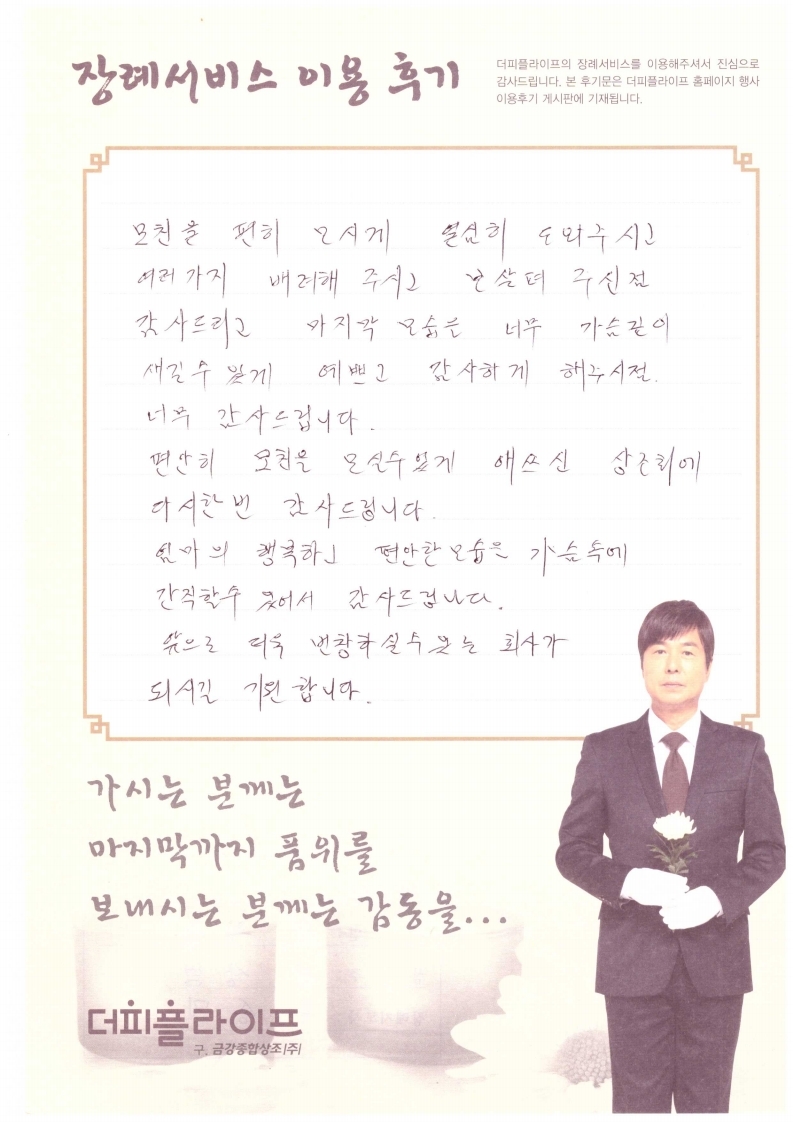 장례서비스 이용 후기
더피플라이프의 장례서비스를 이용해주셔서 진심으로
감사드립니다. 본 후기문은 더피플라이프 홈페이지 행사
이용후기 게시판에 기재됩니다.
모친을 편히 모시게 열심히 도와주시고
여러가지 배려해 주시고 보살펴 주신점
감사드리고 마지막 모습은 너무 가슴깊이
새길수 있게 예쁘고 감사하게 해주시점.
너무 감사드립니다.
편안히 모친을 모실수있게 애쓰신 상조회에
다시한번 감사드립니다.
엄마의 행복하고 편안한모습을 가슴속에
간직할수 있어서 감사드립니다.
앞으로 더욱 번창하실수있는 회사가
되시길 기원합니다.
가시는 분께는
마지막까지 품위를
보내시는 분께는 감동을...
더피플라이프
구. 금강종합상조(주)